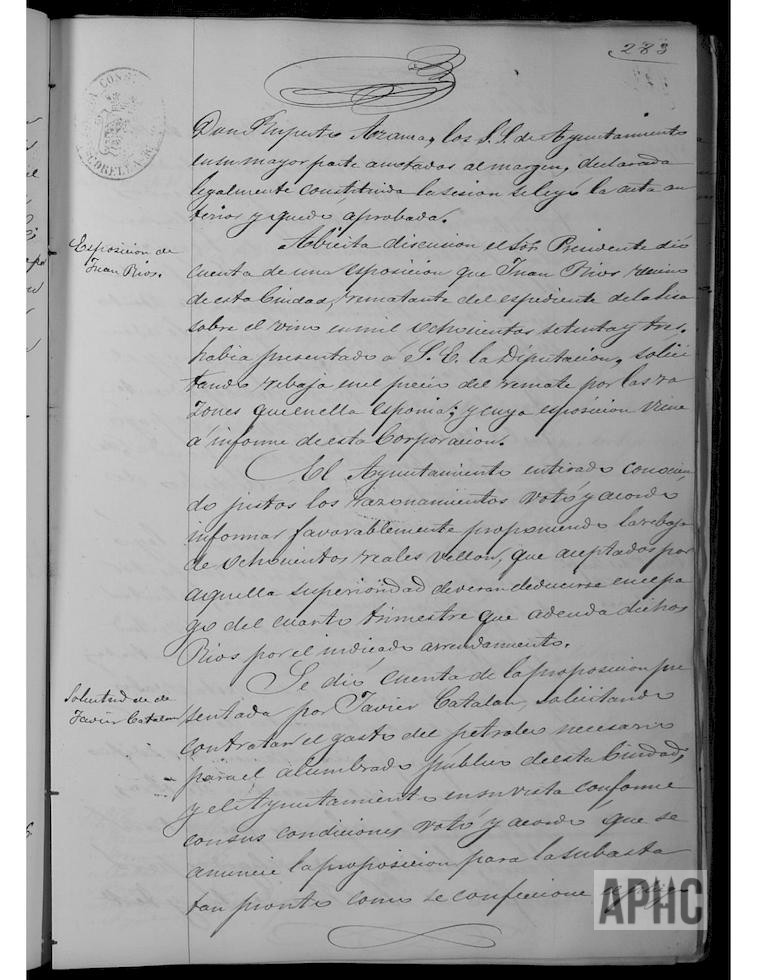 283
Don Ruperto Arama, los S.S. de Ayuntamiento
en su mayor parte anotados al margen, declarada
legalmente constituida la sesion se leyó la acta an
terior y quedó aprobada.
Esposicion de
Juan Rios.
Abierta discusion el Sor. Presidente dió
cuenta de una esposicion que Juan Rios vecino
de esta Ciudad, rematante del espediente de la sisa
sobre el vino en mil ochocientos setenta y tres,
habia presentado á S. E. la Diputacion, solici
tando rebaja en el precio del remate por las ra
zones que en ella esponia; y cuya esposicion viene
á informe de esta Corporacion.
El Ayuntamiento enterado conocien
do justos los razonamientos votó y acordó
informar favorablemente proponiendo la rebaja
de ochocientos reales vellon, que aceptados por
aquella superioridad deveran deducirse en el pa
go del cuarto trimestre que adeuda dichos
Rios por el indicado arrendamiento.
Solicitud de de
Javier Catalan
Se dió cuenta de la proposicion pre
sentada por Javier Catalan, solicitando
contratar el gasto del petroleo necesario
para el alumbrado público de esta Ciudad,
y el Ayuntamiento en su vista conforme
con sus condiciones votó y acordó que se
anuncie la proposicion para la subasta
tan pronto como se confeccione
APHC